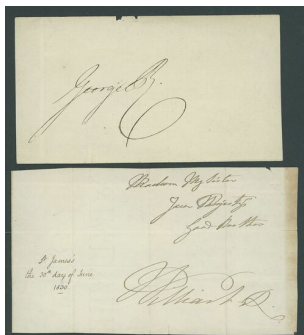 George R.
Madam My Sister
Your Majesty's
Good Brother
St James's
the 30th day of June
1830
William R.